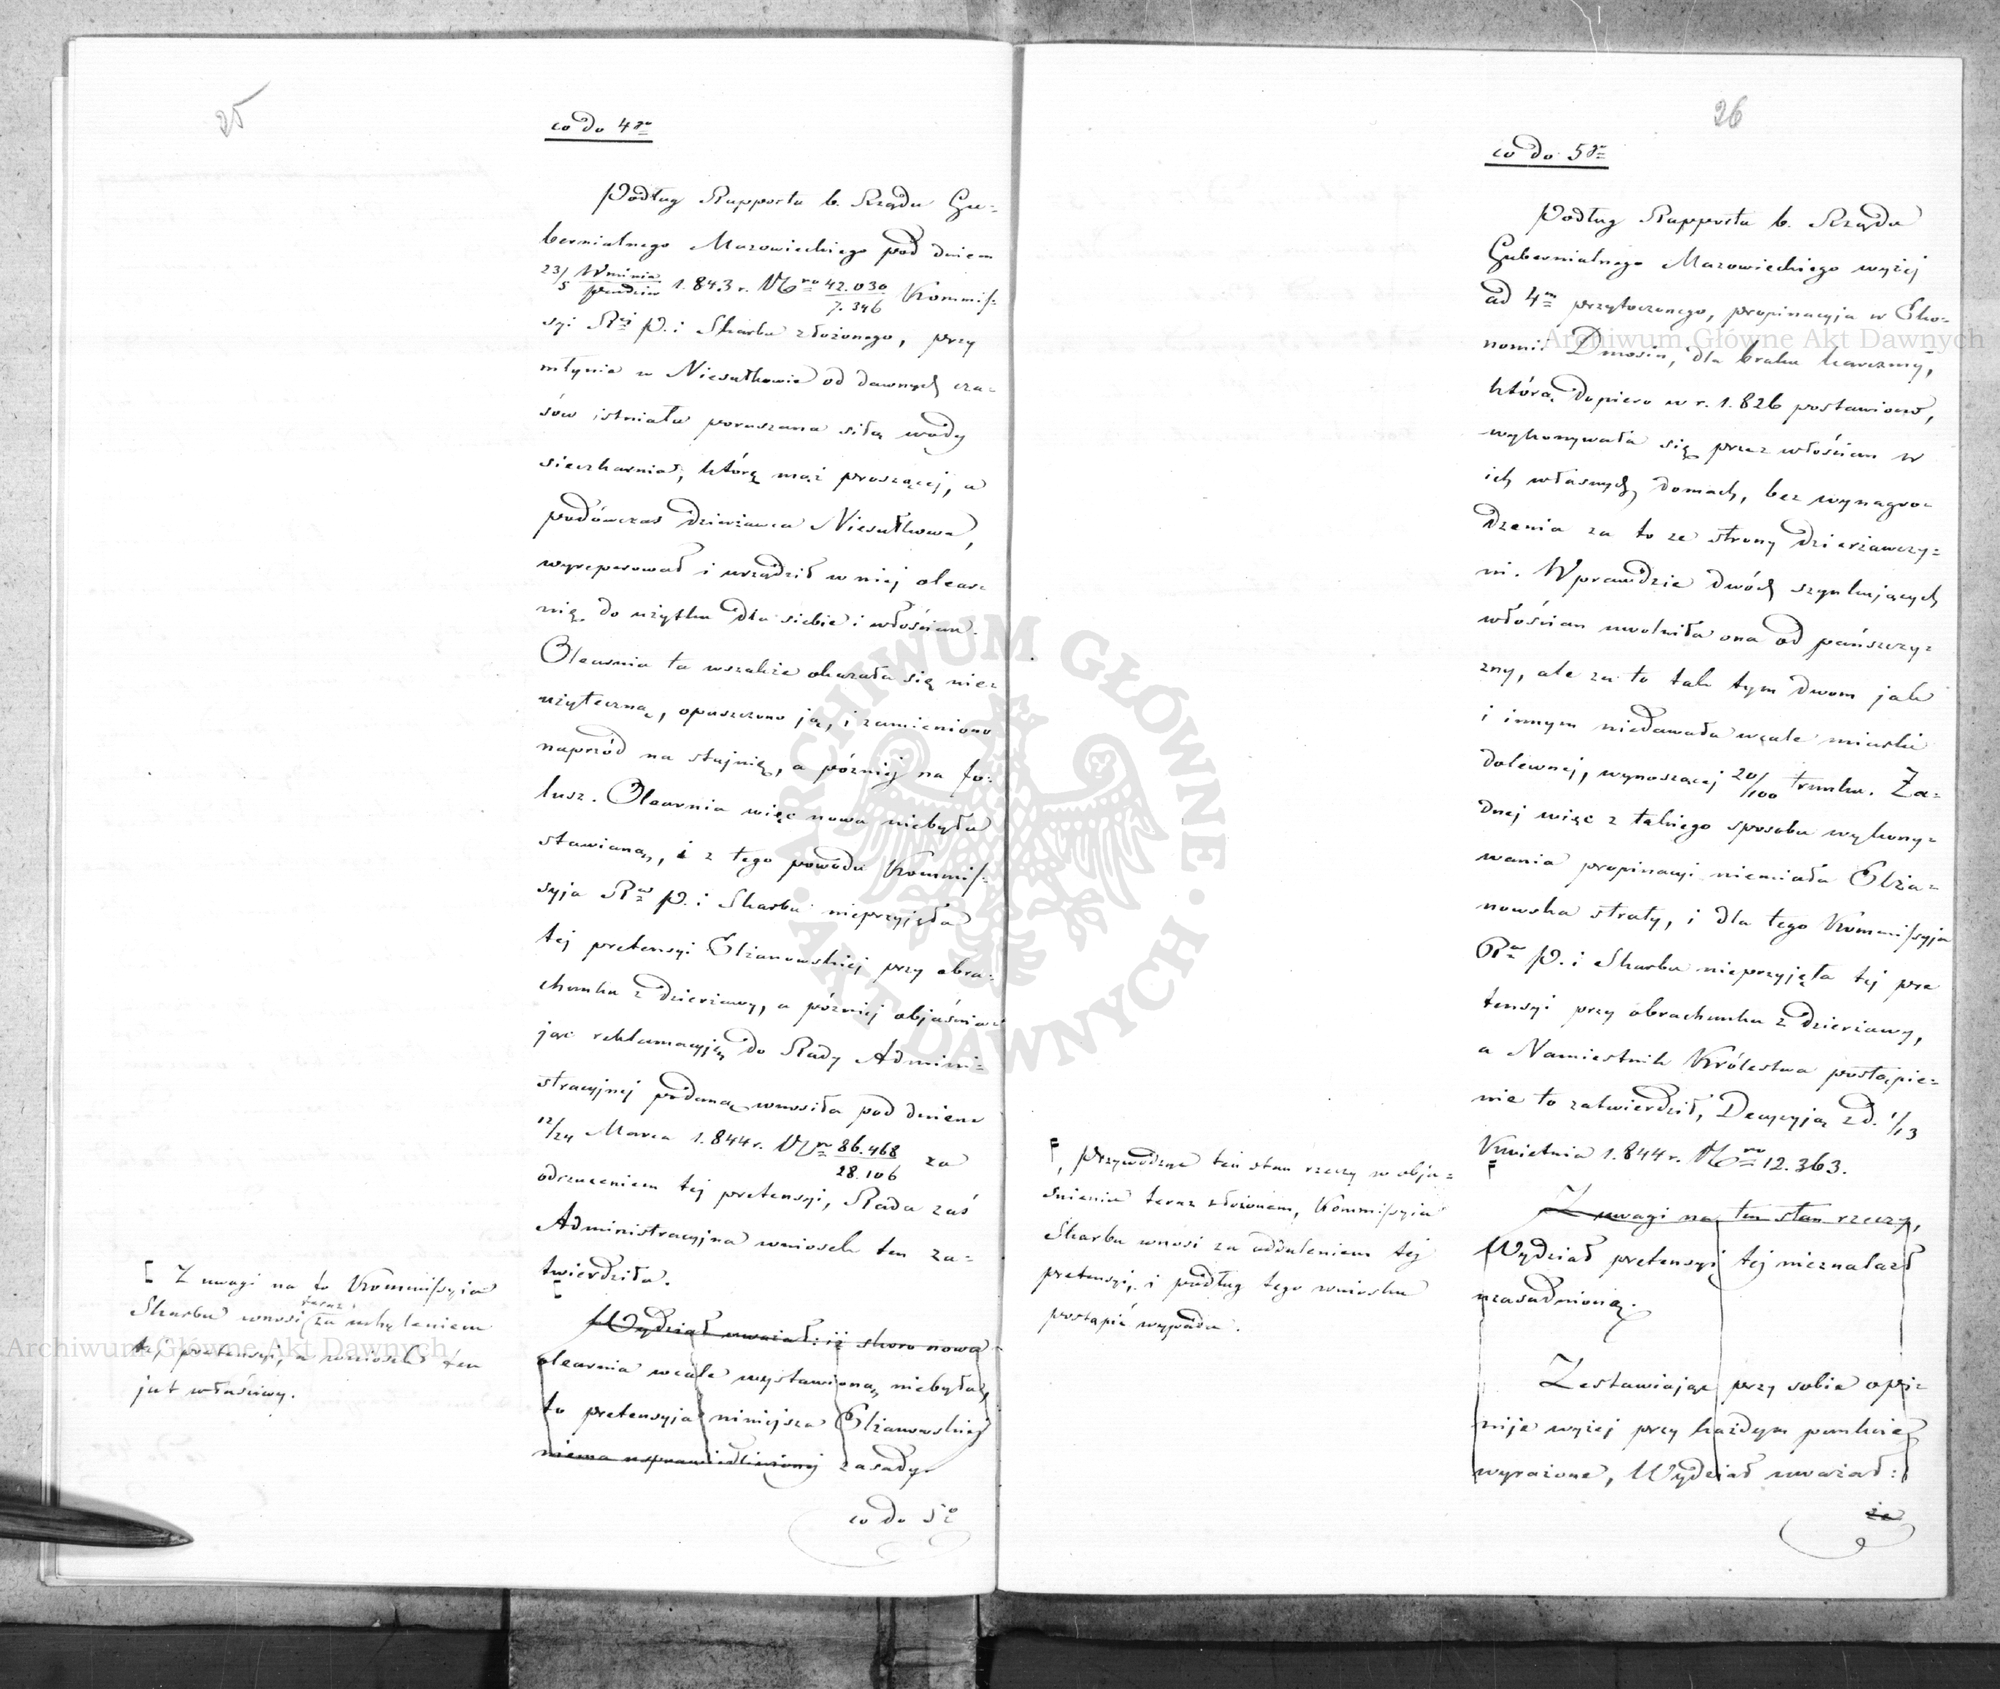 25
co do 4go
Podług Rapportu b. Rządu Gu-
bernialnego Mazowieckiego pod dniem
23/5 Września/Paździer 1.843 r. Nro 42.030/7.346 Kommis-
syi Rej P. i Skarbu złożonego, przy
młynie w Niesułkowie od dawnych cza-
sów istniała poruszana siłą wody
sieczkarnia, którą mąż proszącej, a
podówczas dzierżawca Niesułkowa,
wyreperował i urządził w niej olear-
nię do użytku dla siebie i włościan.
Olearnia ta wszakże okazała się nie-
użyteczną, opuszczono ją, i zamieniono
naprzód na stajnię, a później na fo-
lusz. Olearnia więc nowa niebyła
stawianą, i z tego powodu Kommis-
syja Ra P. i Skarbu nieprzyjęła
tej pretensyi Elżanowskiej przy obra-
chunku z dzierżawy, a później objaśnia-
jąc reklamacyją do Rady Admini-
stracyjnej podaną wnosiła pod dniem
12/24 Marca 1.844 r. Nro 86.468/28.106 za
odrzuceniem tej pretensyi, Rada zaś
Administracyjna wniosek ten za-
twierdziła.
Z uwagi na to Kommissyja
Skarbu wnosi teraz za uchyleniem
tej pretensyi, a wniosek ten
jest właściwy.
Wydział uważał: iż skoro nowa
olearnia wcale wystawioną niebyła,
to pretensyja niniejsza Elżanowskiej
niema usprawiedliwionej zasady.
co do 5o
26
co do 5go
Podług Rapportu b. Rządu
Gubernialnego Mazowieckiego wyżej
ad 4m przytoczonego, propinacyja w Eko-
nomii Dmosin, dla braku karczmy,
którą dopiero w r. 1.826 postawiono,
wykonywała się przez włościan w
ich własnych domach, bez wynagro-
dzenia za to ze strony dzierżawczy-
ni. Wprawdzie dwóch szynkujących
włościan uwolniła ona od pańszczy-
zny, ale za to tak tym dwom jak
i innym niedawała wcale miarki
dolewnej, wynoszącej 20/100 trunku. Ża-
dnej więc z takiego sposobu wykony-
wania propinacyi niemiała Elża-
nowska straty, i dla tego Kommissyja
Ra P. i Skarbu nieprzyjęła tej pre
tensyi przy obrachunku z dzierżawy,
a Namiestnik Królestwa postąpie-
nie to zatwierdził, Decyzyją z d. 1/13
Kwietnia 1.844 r. Nro 12.363.
Przywodząc ten stan rzeczy w obja-
śnieniu teraz złożonem, Kommissyja
Skarbu wnosi za oddaleniem tej
pretensyi, i podług tego wniosku
postąpić wypada.
Z uwagi na ten stan rzeczy,
Wydział pretensyi tej nieznalazł
uzasadnioną.
Zestawiając przy sobie opi-
nije wyżej przy każdym punkcie
wyrażone, Wydział uważał:
że
Archiwum Główne Akt Dawnych
Archiwum Główne Akt Dawnych
ARCHIWUM GŁÓWNE AKT DAWNYCH